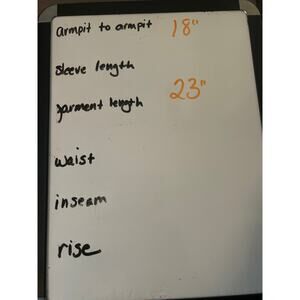 armpit to armpit 18"
sleeve length
garment length 23"
waist
inseam
rise